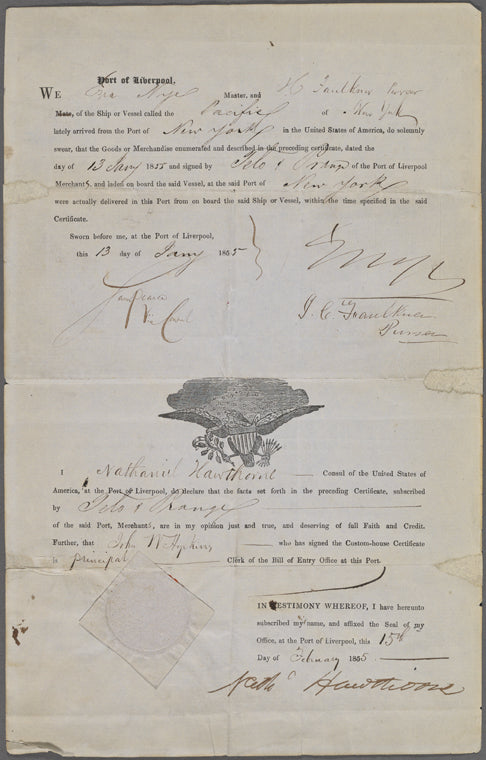 Port of Liverpool,
WE Ezra Nye Master, and H Faulkner Purser
Mate, of the Ship or Vessel called the Pacific of New York
lately arrived from the Port of New York in the United States of America, do solemnly
swear, that the Goods or Merchandise enumerated and described in the preceding certificate, dated the
day of 13 Jany 1855 and signed by of the Port of Liverpool
Merchants, and laden on board the said Vessel, at the said Port of New York
were actually delivered in this Port from on board the said Ship or Vessel, within the time specified in the said
Certificate.
Sworn before me, at the Port of Liverpool,
this 13 day of Jany 1855
Nye
Faulkner
Purser
I Nathaniel Hawthorne Consul of the United States of
America, at the Port of Liverpool, do declare that the facts set forth in the preceding Certificate, subscribed
by
of the said Port, Merchants, are in my opinion just and true, and deserving of full Faith and Credit.
Further, that John W who has signed the Custom-house Certificate
is principal Clerk of the Bill of Entry Office at this Port.
IN TESTIMONY WHEREOF, I have hereunto
subscribed my name, and affixed the Seal of my
Office, at the Port of Liverpool, this 15th
Day of February 1855
Nathl Hawthorne